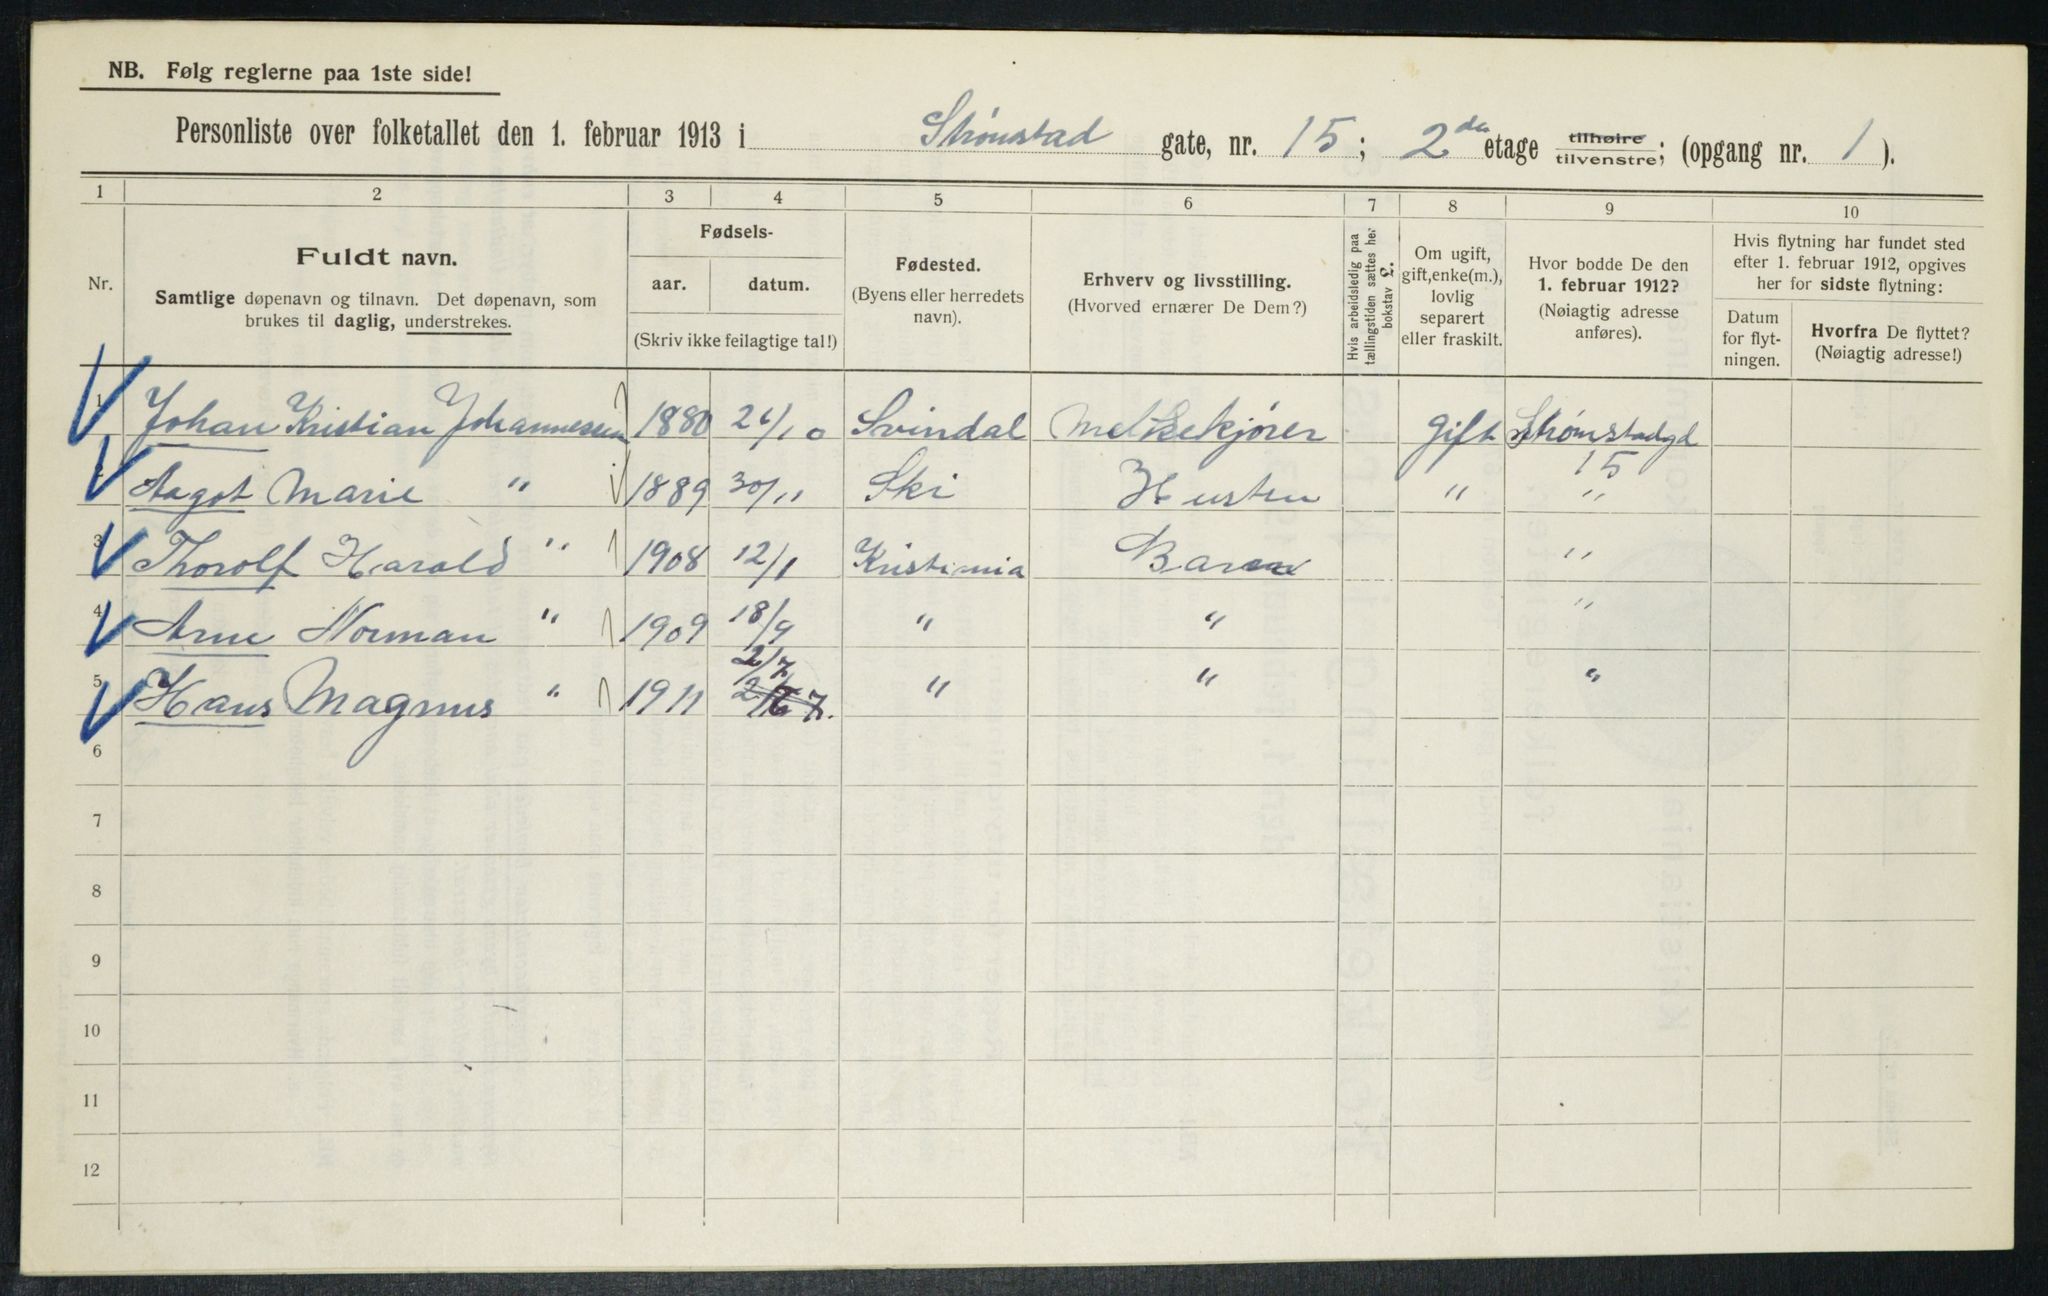 NB. Følg reglerne paa 1ste side!
Personliste over folketallet den 1. februar 1913 i Strømstad gate, nr. 15; 2den etage tilhøire tilvenstre; (opgang nr. 1).
1 2 3 4 5 6 7 8 9 10
Nr.
Fuldt navn.
Samtlige døpenavn og tilnavn. Det døpenavn, som
brukes til daglig, understrekes.
Fødsels-
aar. datum.
(Skriv ikke feilagtige tal!)
Fødested.
(Byens eller herredets
navn).
Erhverv og livsstilling.
(Hvorved ernærer De Dem?)
Hvis arbeidsledig paa
tællingstiden sættes her
bokstav L.
Om ugift,
gift, enke(m.),
lovlig
separert
eller fraskilt.
Hvor bodde De den
1. februar 1912?
(Nøiagtig adresse
anføres).
Hvis flytning har fundet sted
efter 1. februar 1912, opgives
her for sidste flytning:
Datum
for flyt-
ningen.
Hvorfra De flyttet?
(Nøiagtig adresse!)
1 Johan Kristian Johannessen 1880 26/10 Svindal Melkekjører Gift Strømstadgd
15
2 Aagot Marie " 1889 30/11 Ski Hustru " "
3 Thorolf Harald " 1908 12/1 Kristiania Barn "
4 Arne Norman " 1909 18/9 " " "
2/7
5 Hans Magnus " 1911 " " "
6
7
8
9
10
11
12